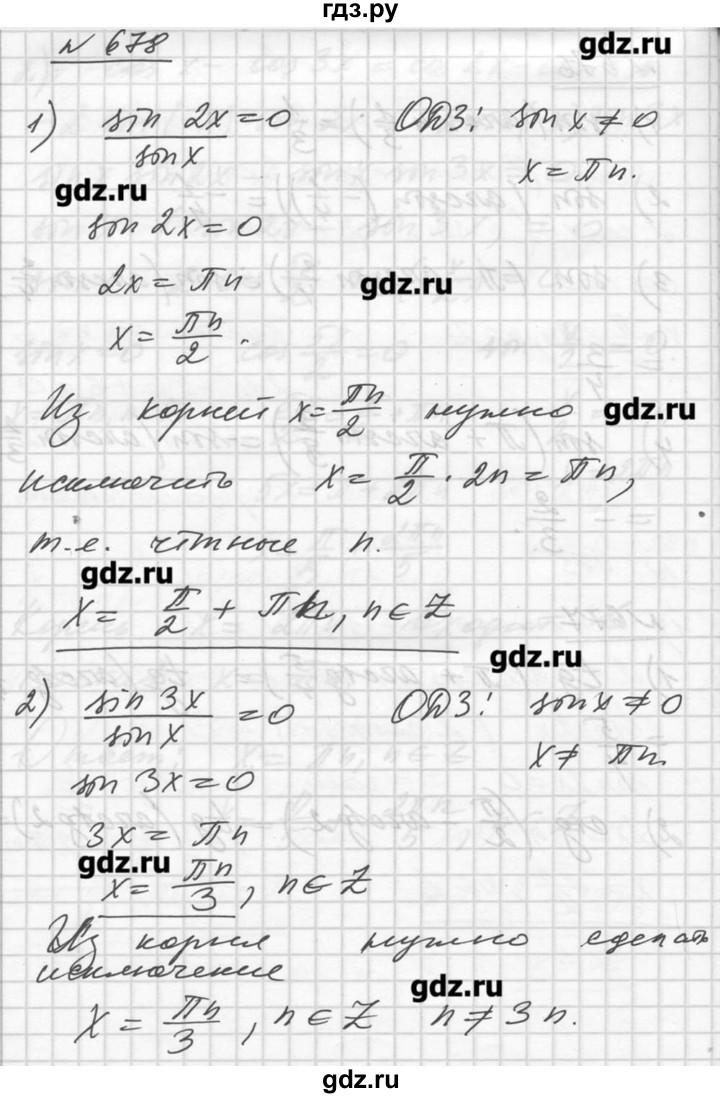 гдз.ру
№ 678
gdz.ru
1) sin 2x / sin x = 0 ОДЗ: sin x ≠ 0
x = πn.
gdz.ru
sin 2x = 0
2x = πn
gdz.ru
x = πn/2.
Из корней x = πn/2 нужно
gdz.ru
исключить x = π/2 · 2n = πn,
т.е. чётные n.
gdz.ru
x = π/2 + πk, n ∈ Z
gdz.ru
2) sin 3x / sin x = 0 ОДЗ: sin x ≠ 0
x ≠ πn
sin 3x = 0
3x = πn
gdz.ru
x = πn/3, n ∈ Z
Из корня нужно сделать
исключение
gdz.ru
x = πn/3, n ∈ Z n ≠ 3n.
gdz.ru